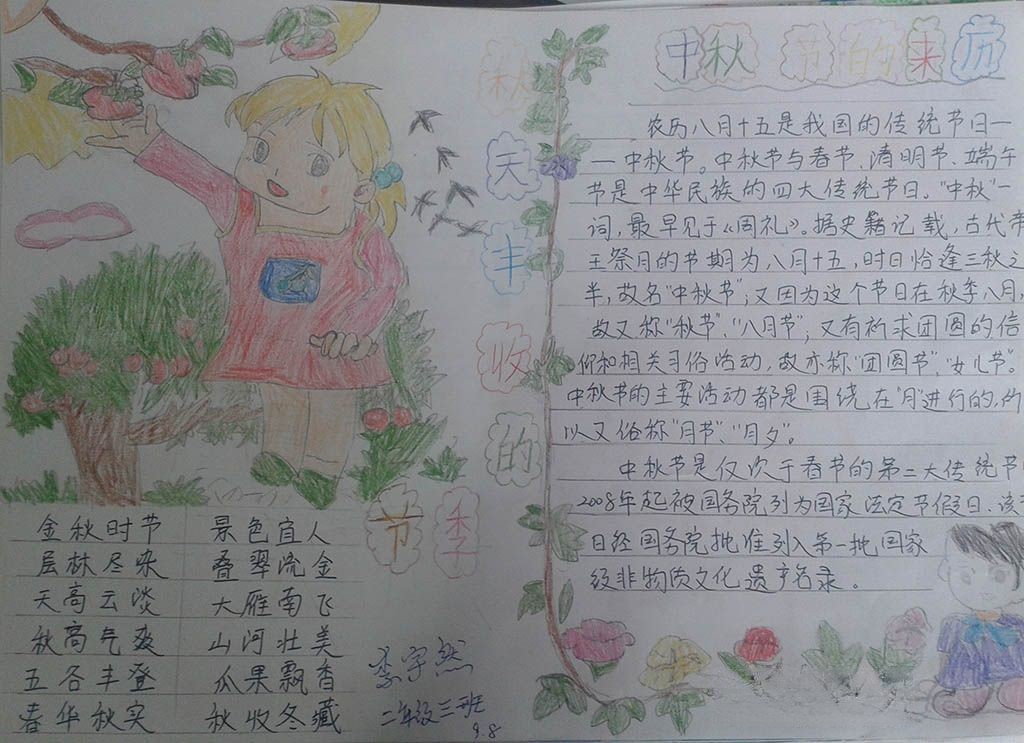 秋天丰收的
节季
金秋时节 景色宜人
层林尽染 叠翠流金
天高云淡 大雁南飞
秋高气爽 山河壮美
五谷丰登 瓜果飘香
春华秋实 秋收冬藏
李宇然
二年级三班
9.8
中秋节的来历
农历八月十五是我国的传统节日—
—中秋节。中秋节与春节、清明节、端午
节是中华民族的四大传统节日。"中秋"一
词,最早见于《周礼》。据史籍记载,古代帝
王祭月的节期为八月十五,时日恰逢三秋之
半,故名"中秋节";又因为这个节日在秋季八月,
故又称"秋节"、"八月节";又有祈求团圆的信
仰和相关习俗活动,故亦称"团圆节"、"女儿节"。
中秋节的主要活动都是围绕在"月"进行的,所
以又俗称"月节"、"月夕"。
中秋节是仅次于春节的第二大传统节
2008年起被国务院列为国家法定节假日、该
日经国务院批准列入第一批国家
级非物质文化遗产名录。